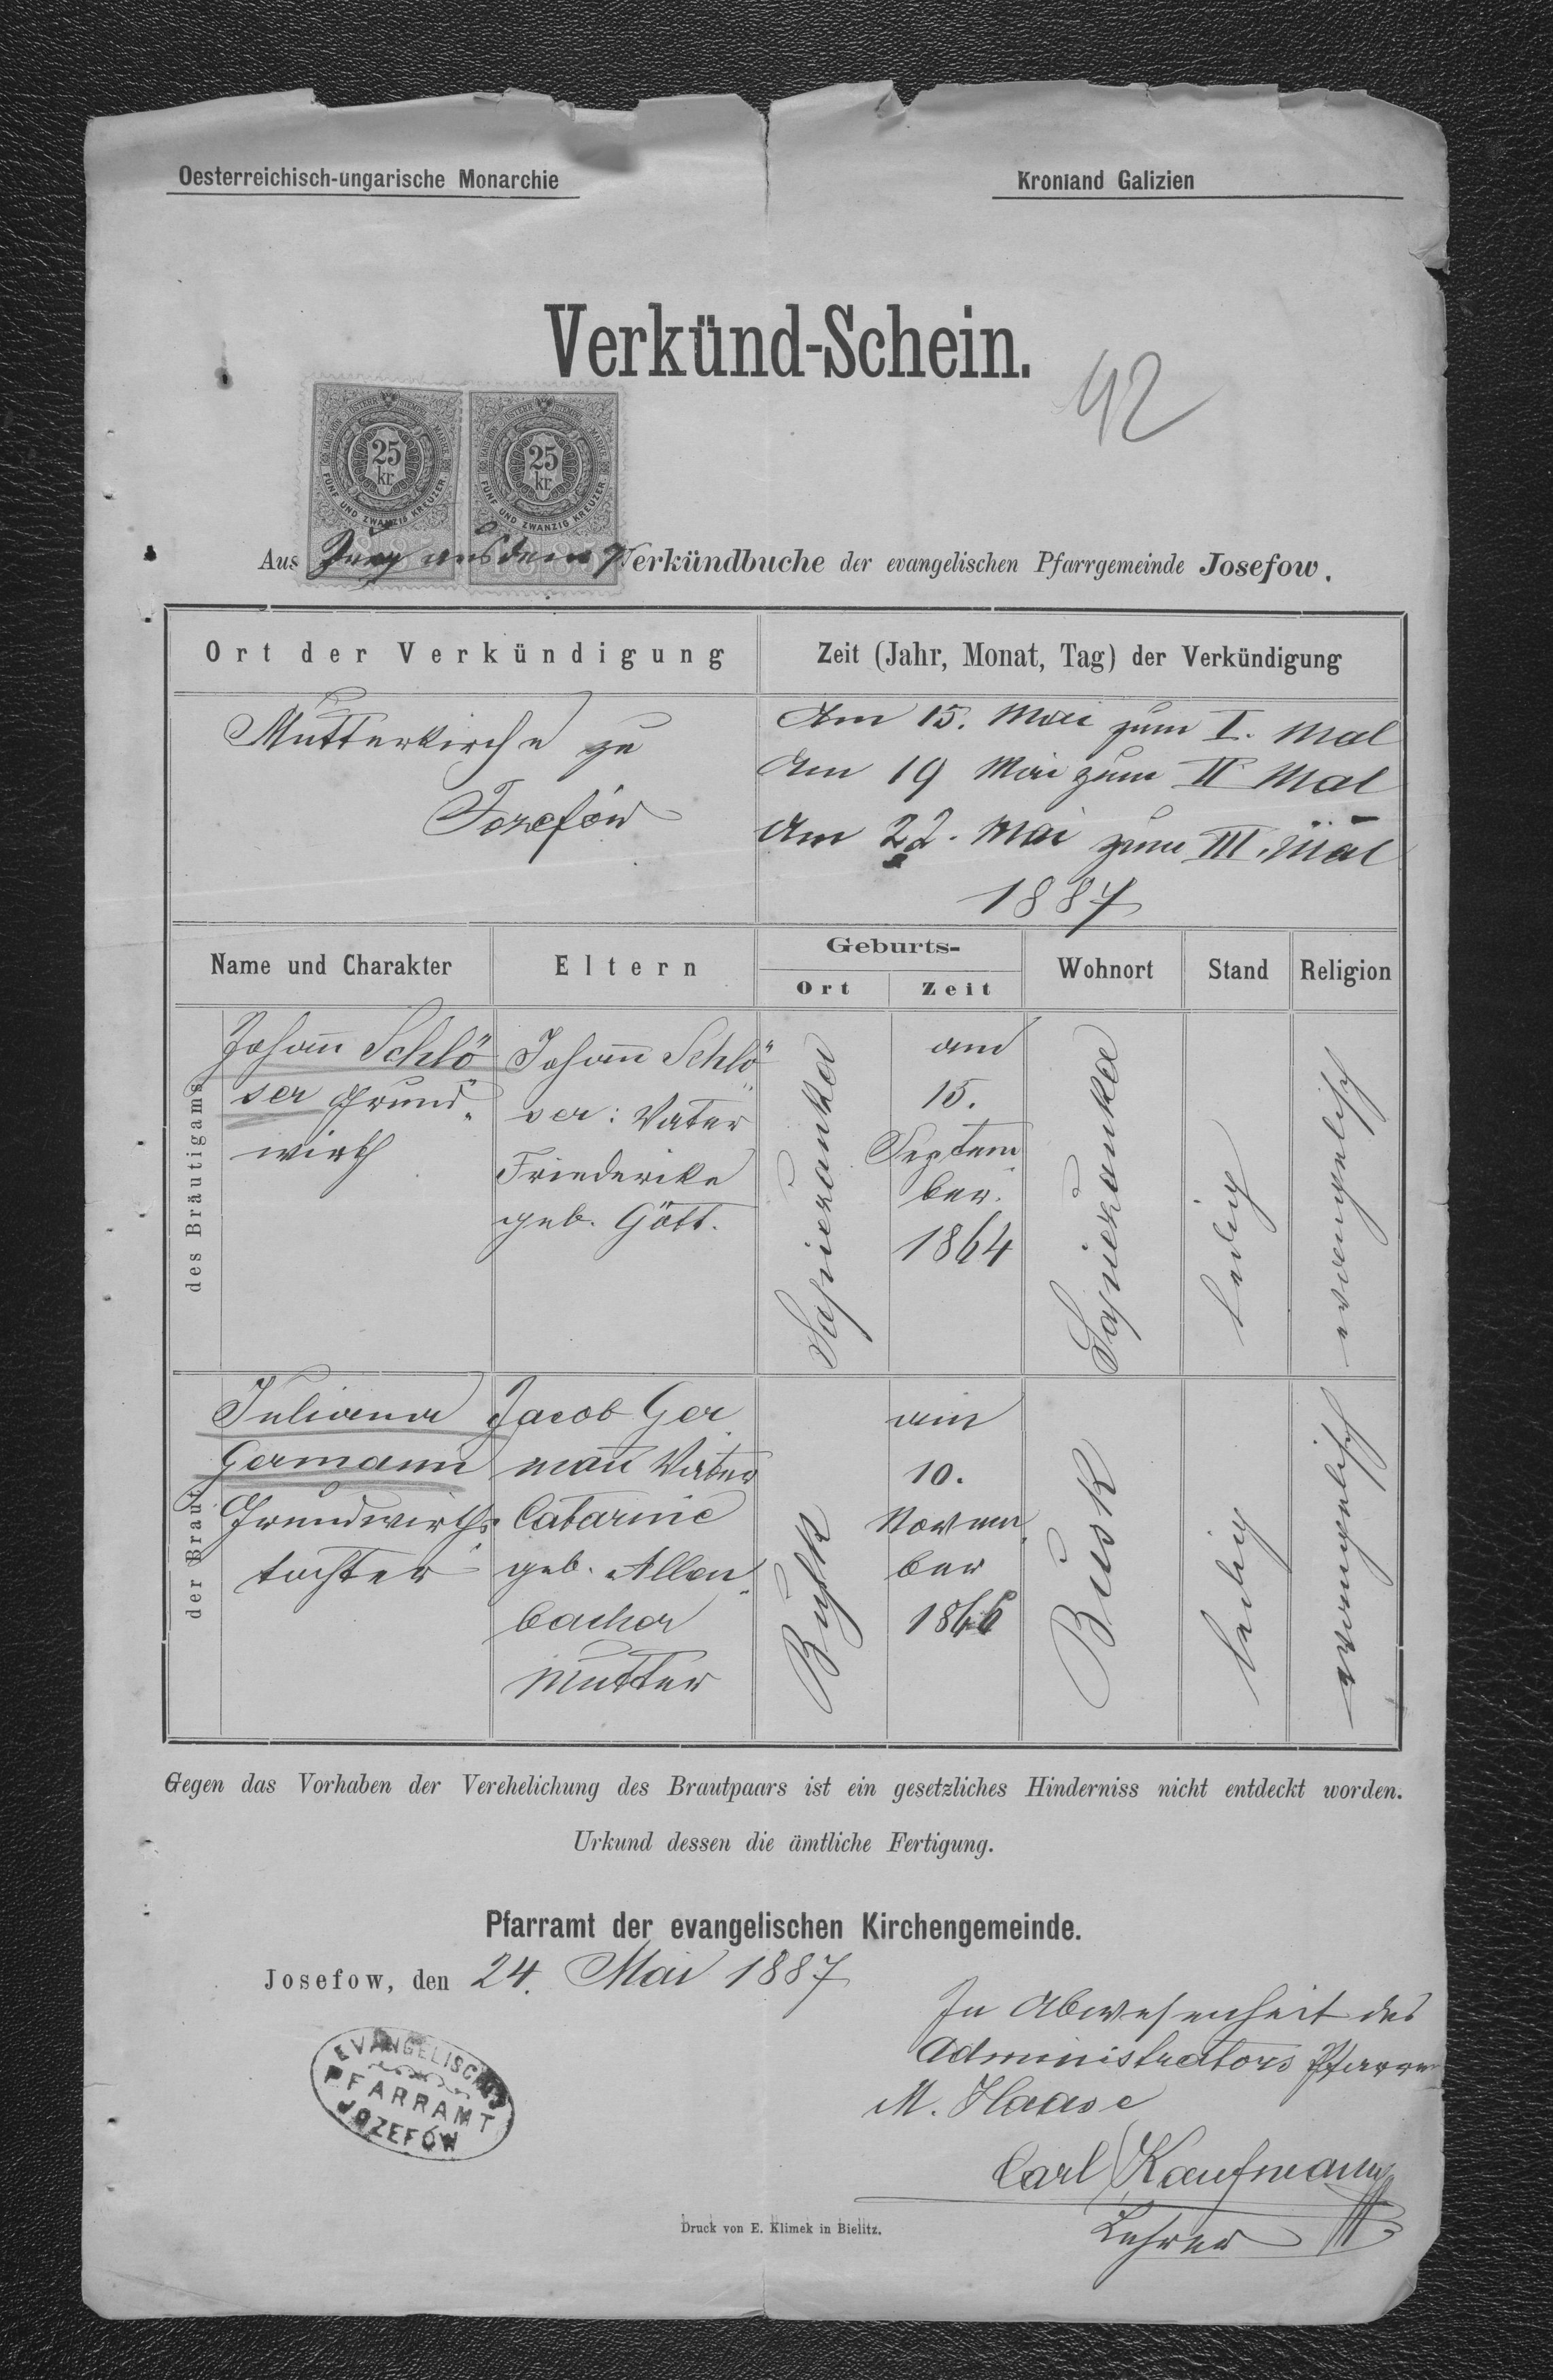 Oesterreichisch-ungarische Monarchie
Kronland Galizien
Verkünd-Schein.
42
25 kr
25 kr
FÜNF UND ZWANZIG KREUZER
FÜNF UND ZWANZIG KREUZER
Aus Zug aus dem Verkündbuche der evangelischen Pfarrgemeinde Josefow.
Ort der Verkündigung
Zeit (Jahr, Monat, Tag) der Verkündigung
Mutterkirche zu
Jozefów
Am 15. Mai zum I. Mal
Am 19 Mai zum II Mal
Am 22. Mai zum III. Mal
1887
Name und Charakter
Eltern
Geburts-
Ort
Zeit
Wohnort
Stand
Religion
des Bräutigams
Johañ Schlö
ser Grund„
wirth
Johañ Schlö„
ser: Vater
Friederike
geb. Gött.
Sapiezanka
am
15.
Septem
ber.
1864
Sapiezanka
ledig
evangelisch
der Braut
Juliana
Germann
Grundwirths
tochter
Jacob Ger
mañ Vater
Catarine
geb. Allen„
bacher
Mutter
Busk
am
10.
Novem
ber
1866
Busk
ledig
evangelisch
Gegen das Vorhaben der Verehelichung des Brautpaars ist ein gesetzliches Hinderniss nicht entdeckt worden.
Urkund dessen die ämtliche Fertigung.
Pfarramt der evangelischen Kirchengemeinde.
Josefow, den 24. Mai 1887
In Abwesenheit des
Administrators Pfarrer
M. Haase
Carl Kaufmann
Lehrer
EVANGELISCHES
PFARRAMT
JOZEFÓW
Druck von E. Klimek in Bielitz.